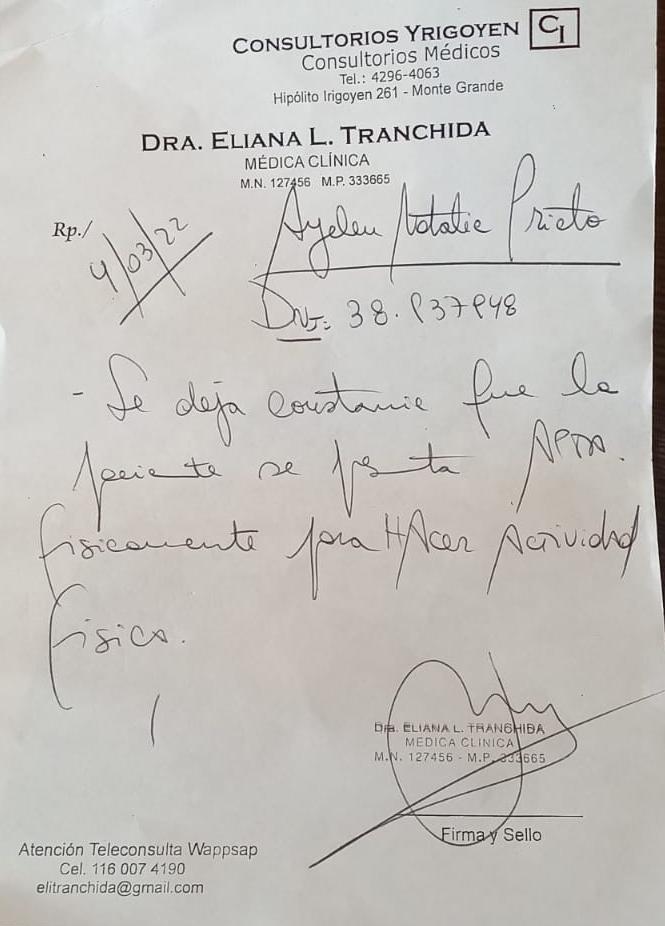 CONSULTORIOS YRIGOYEN CI
Consultorios Médicos
Tel.: 4296-4063
Hipólito Irigoyen 261 - Monte Grande
DRA. ELIANA L. TRANCHIDA
MÉDICA CLÍNICA
M.N. 127456 M.P. 333665
Rp./
4/03/22
Ayelen Natalie Prieto
DNI: 38.
- Se deja constancia que la
paciente se pta APTA.
fisicamente para HAcer Actividad
fisica.
Dra. ELIANA L. TRANCHIDA
MEDICA CLINICA
M.N. 127456 - M.P. 333665
Firma y Sello
Atención Teleconsulta Wappsap
Cel. 116 007 4190
elitranchida@gmail.com